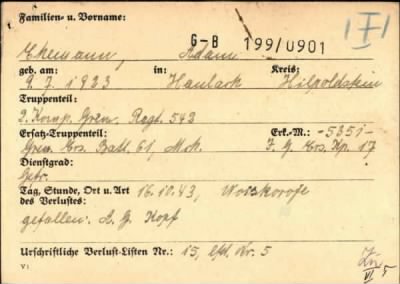 Familien- u. Vorname:
G-B 199/0901
Ehemann, Adam
geb. am: in: Kreis:
9.7.1923 Haulach Hilpoldstein
Truppenteil:
2. Komp. Gren. Regt. 543
Ersatz-Truppenteil: Erk.-M.: -5351-
Gren. Ers. Batl. 61, Mch. J. G. Ers. Kp. 17
Dienstgrad:
Gefr.
Tag, Stunde, Ort u. Art 16.10.43, 
des Verlustes:
gefallen: A. G. Kopf
Urschriftliche Verlust-Listen Nr.: 15, lfd. Nr. 5
V:
VI 5